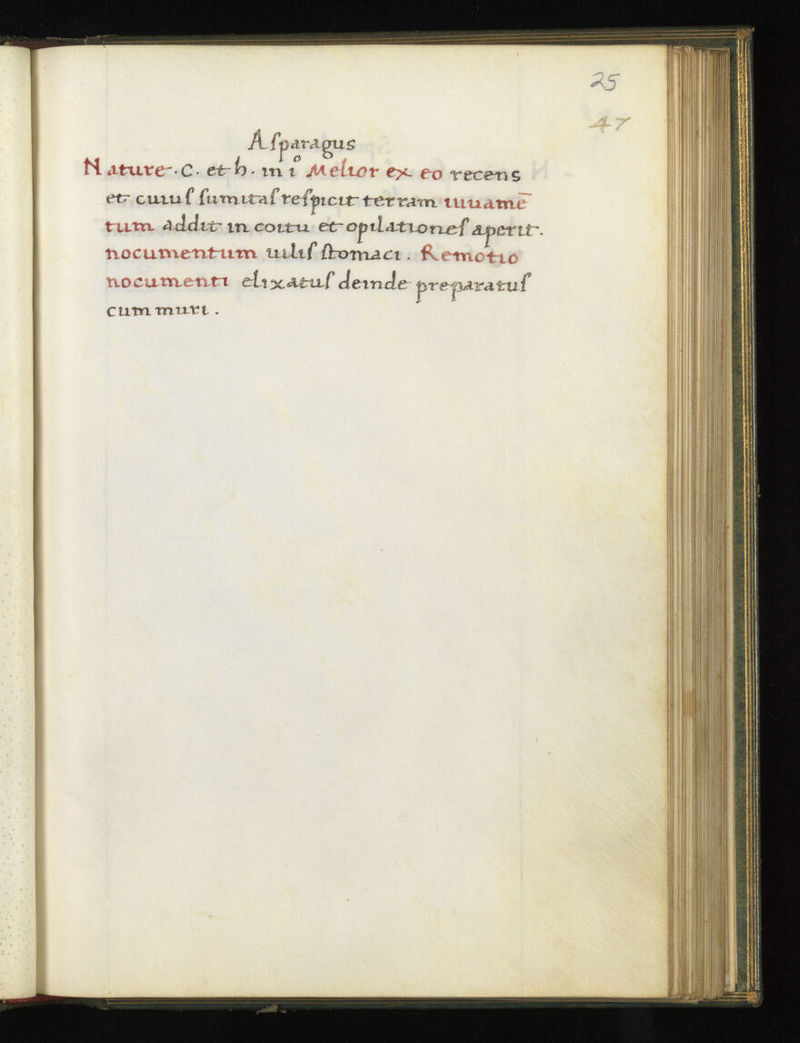 25
47
Aſparagus
Nature .C. et h. in i° Melior ex eo recens
et cuiuſ ſumitaſ reſpicit terram iuuamē
tum addit in coitu et opilationeſ aperit.
nocumentum uiliſ ſtomaci . Remotio
nocumenti elixatuſ deinde preparatuſ
cum muri .